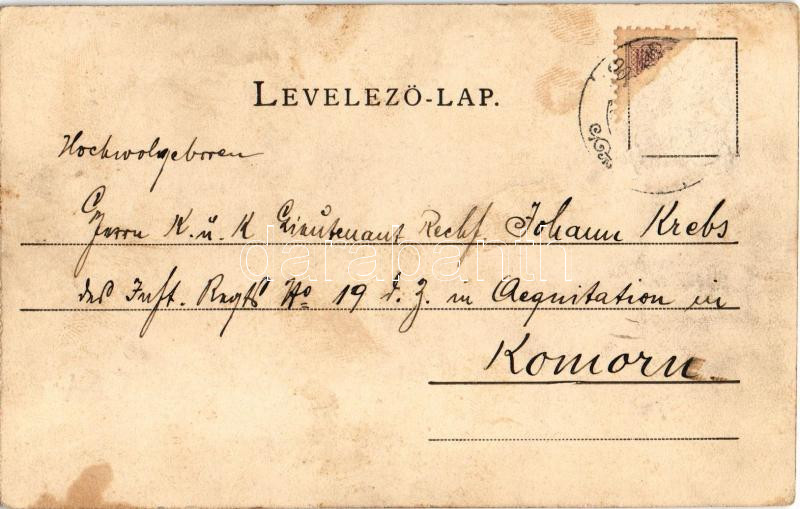 LEVELEZÖ-LAP.
Hochwolgeboren
Herrn K. u. K Lieutenant Johann Krebs
des Inft. Regts No 19 d. Z. in Aequitation in
Komorn
darabanth